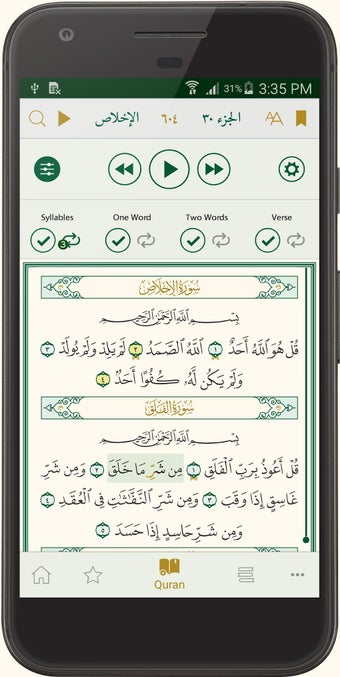 31% 3:35 PM
الجزء ٣٠ ٦٠٤ الإخلاص
Syllables One Word Two Words Verse
3
سُورَةُ الإِخْلَاصِ
بِسْمِ ٱللَّهِ ٱلرَّحْمَٰنِ ٱلرَّحِيمِ
قُلْ هُوَ ٱللَّهُ أَحَدٌ ١ ٱللَّهُ ٱلصَّمَدُ ٢ لَمْ يَلِدْ وَلَمْ يُولَدْ ٣
وَلَمْ يَكُن لَّهُۥ كُفُوًا أَحَدٌۢ ٤
سُورَةُ الفَلَقِ
بِسْمِ ٱللَّهِ ٱلرَّحْمَٰنِ ٱلرَّحِيمِ
قُلْ أَعُوذُ بِرَبِّ ٱلْفَلَقِ ١ مِن شَرِّ مَا خَلَقَ ٢ وَمِن شَرِّ
غَاسِقٍ إِذَا وَقَبَ ٣ وَمِن شَرِّ ٱلنَّفَّٰثَٰتِ فِى ٱلْعُقَدِ ٤
وَمِن شَرِّ حَاسِدٍ إِذَا حَسَدَ ٥
Quran